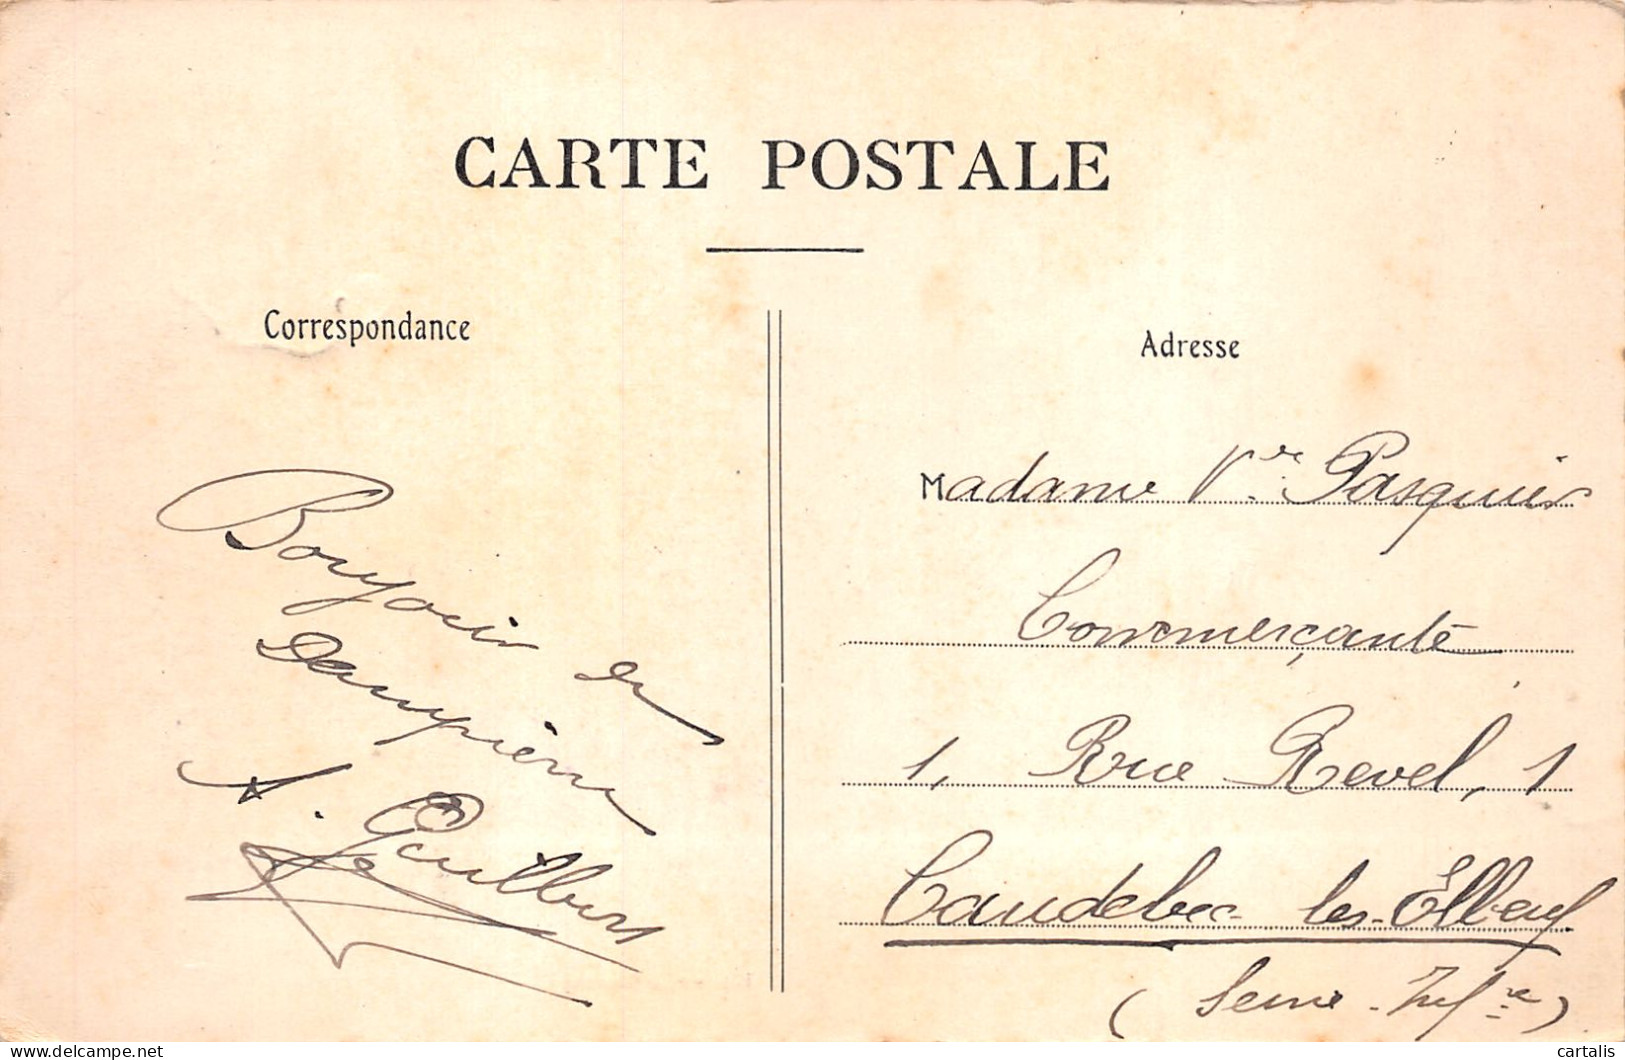 CARTE POSTALE
Correspondance
Bonjour de
Dampierre
A. Guilbert
Adresse
Madame Vve Pasquier
Commerçante
1, Rue Revel, 1
Caudebec-les-Elbeuf
(Seine-Infre)
www.delcampe.net
cartalis